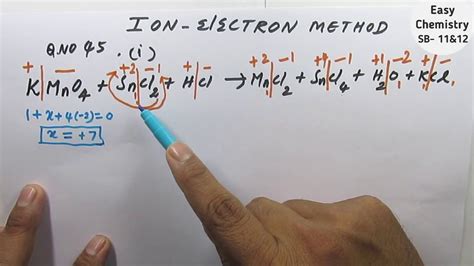 ION-ELECTRON METHOD
Easy
Chemistry
SB- 11&12
Q.NO 45 .(i)
+ +2 -1 + - +2 -1 +4 -1 +1 -2 + -
K|MnO₄ + Sn|Cl₂ + H|Cl → Mn|Cl₂ + Sn|Cl₄ + H₂|O + K|Cl
1 + x + 4(-2) = 0
x = +7